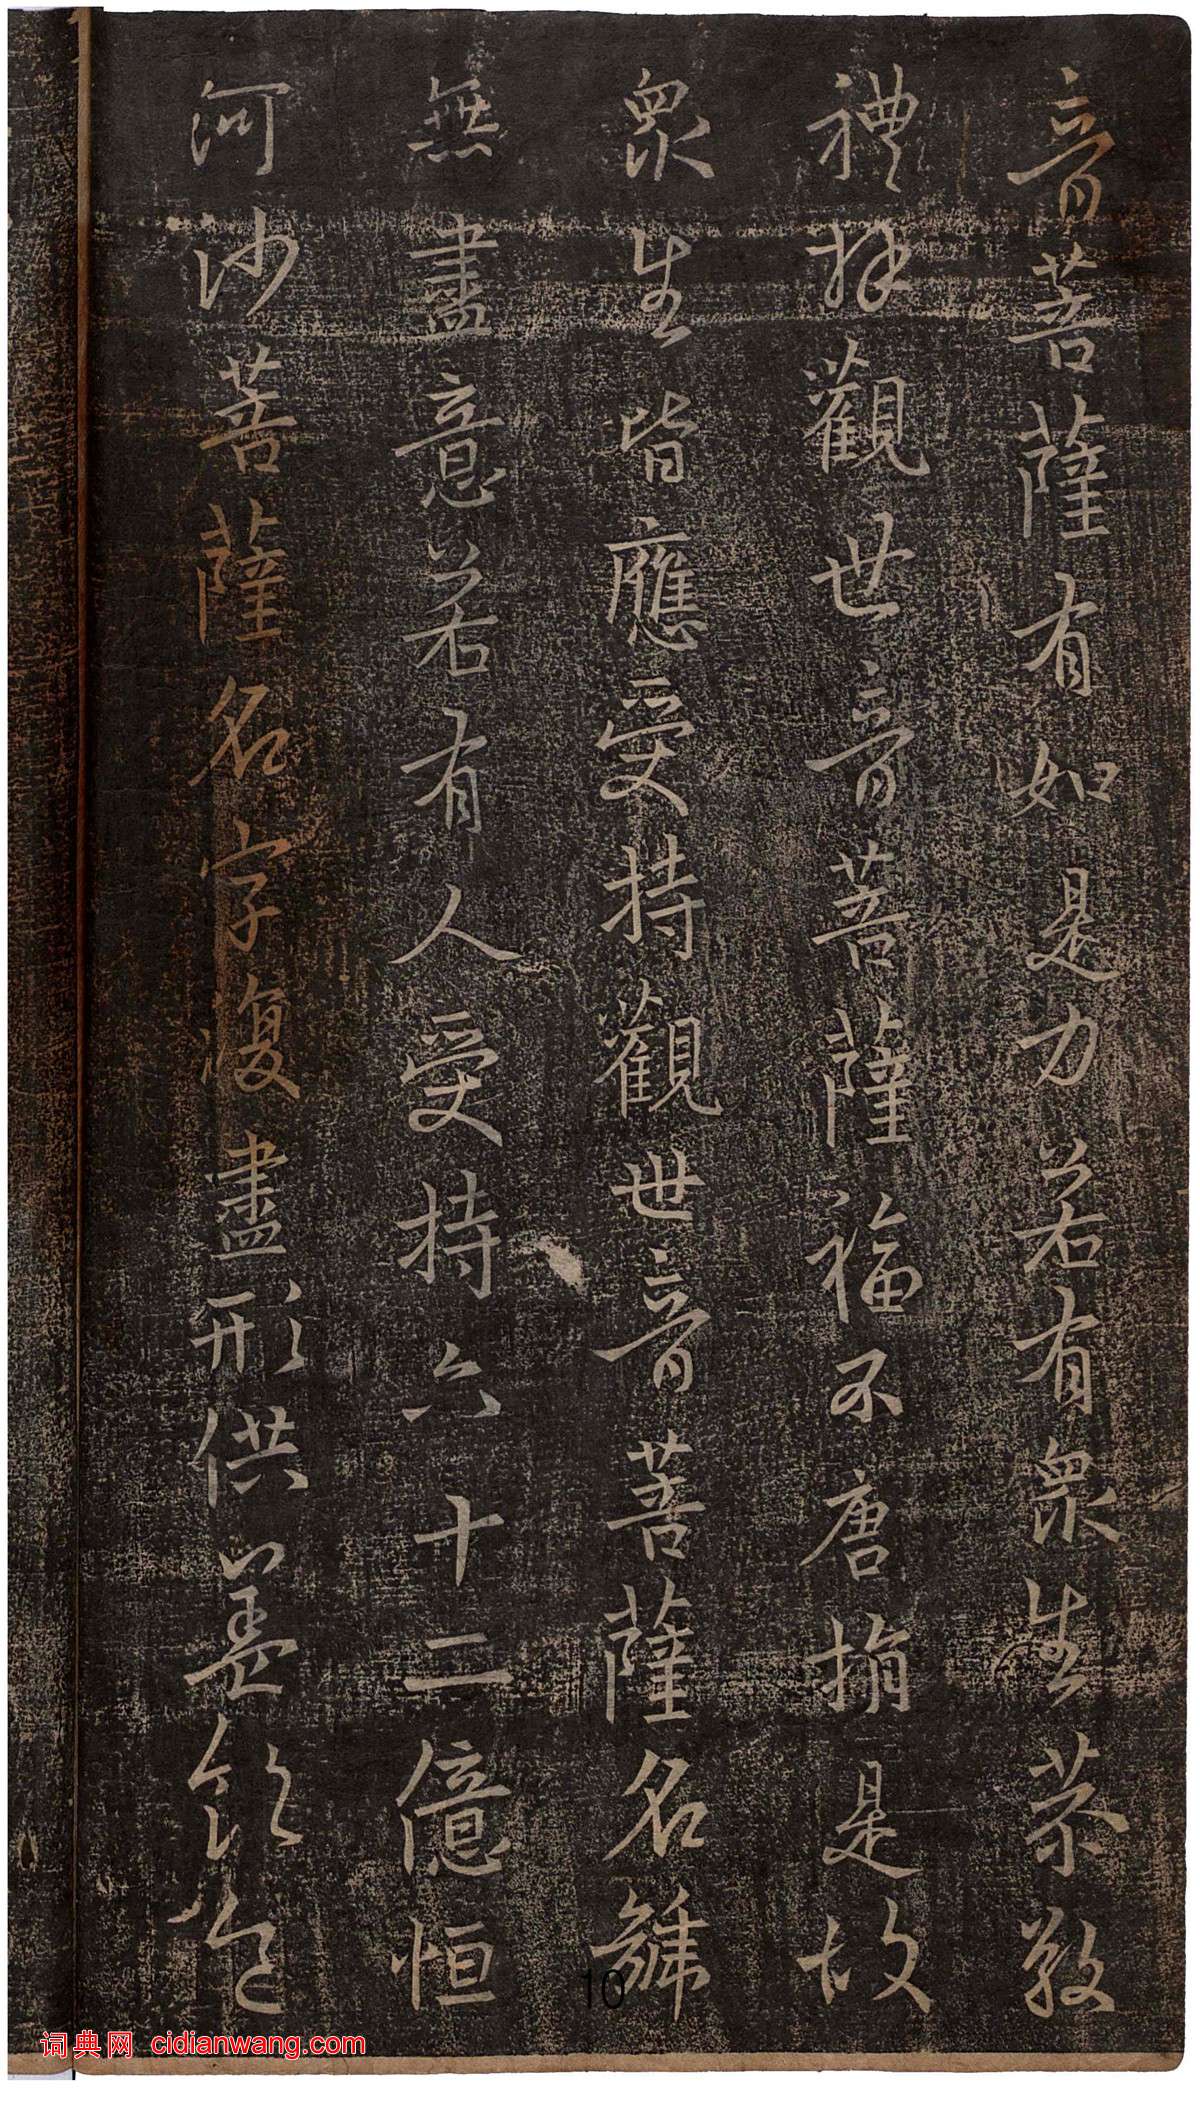 音菩薩有如是力若有衆生恭敬
禮拜觀世音菩薩福不唐捐是故
衆生皆應受持觀世音菩薩名號
無盡意若有人受持六十二億恒
河沙菩薩名字復盡形供養飲食
10
词典网 cidianwang.com